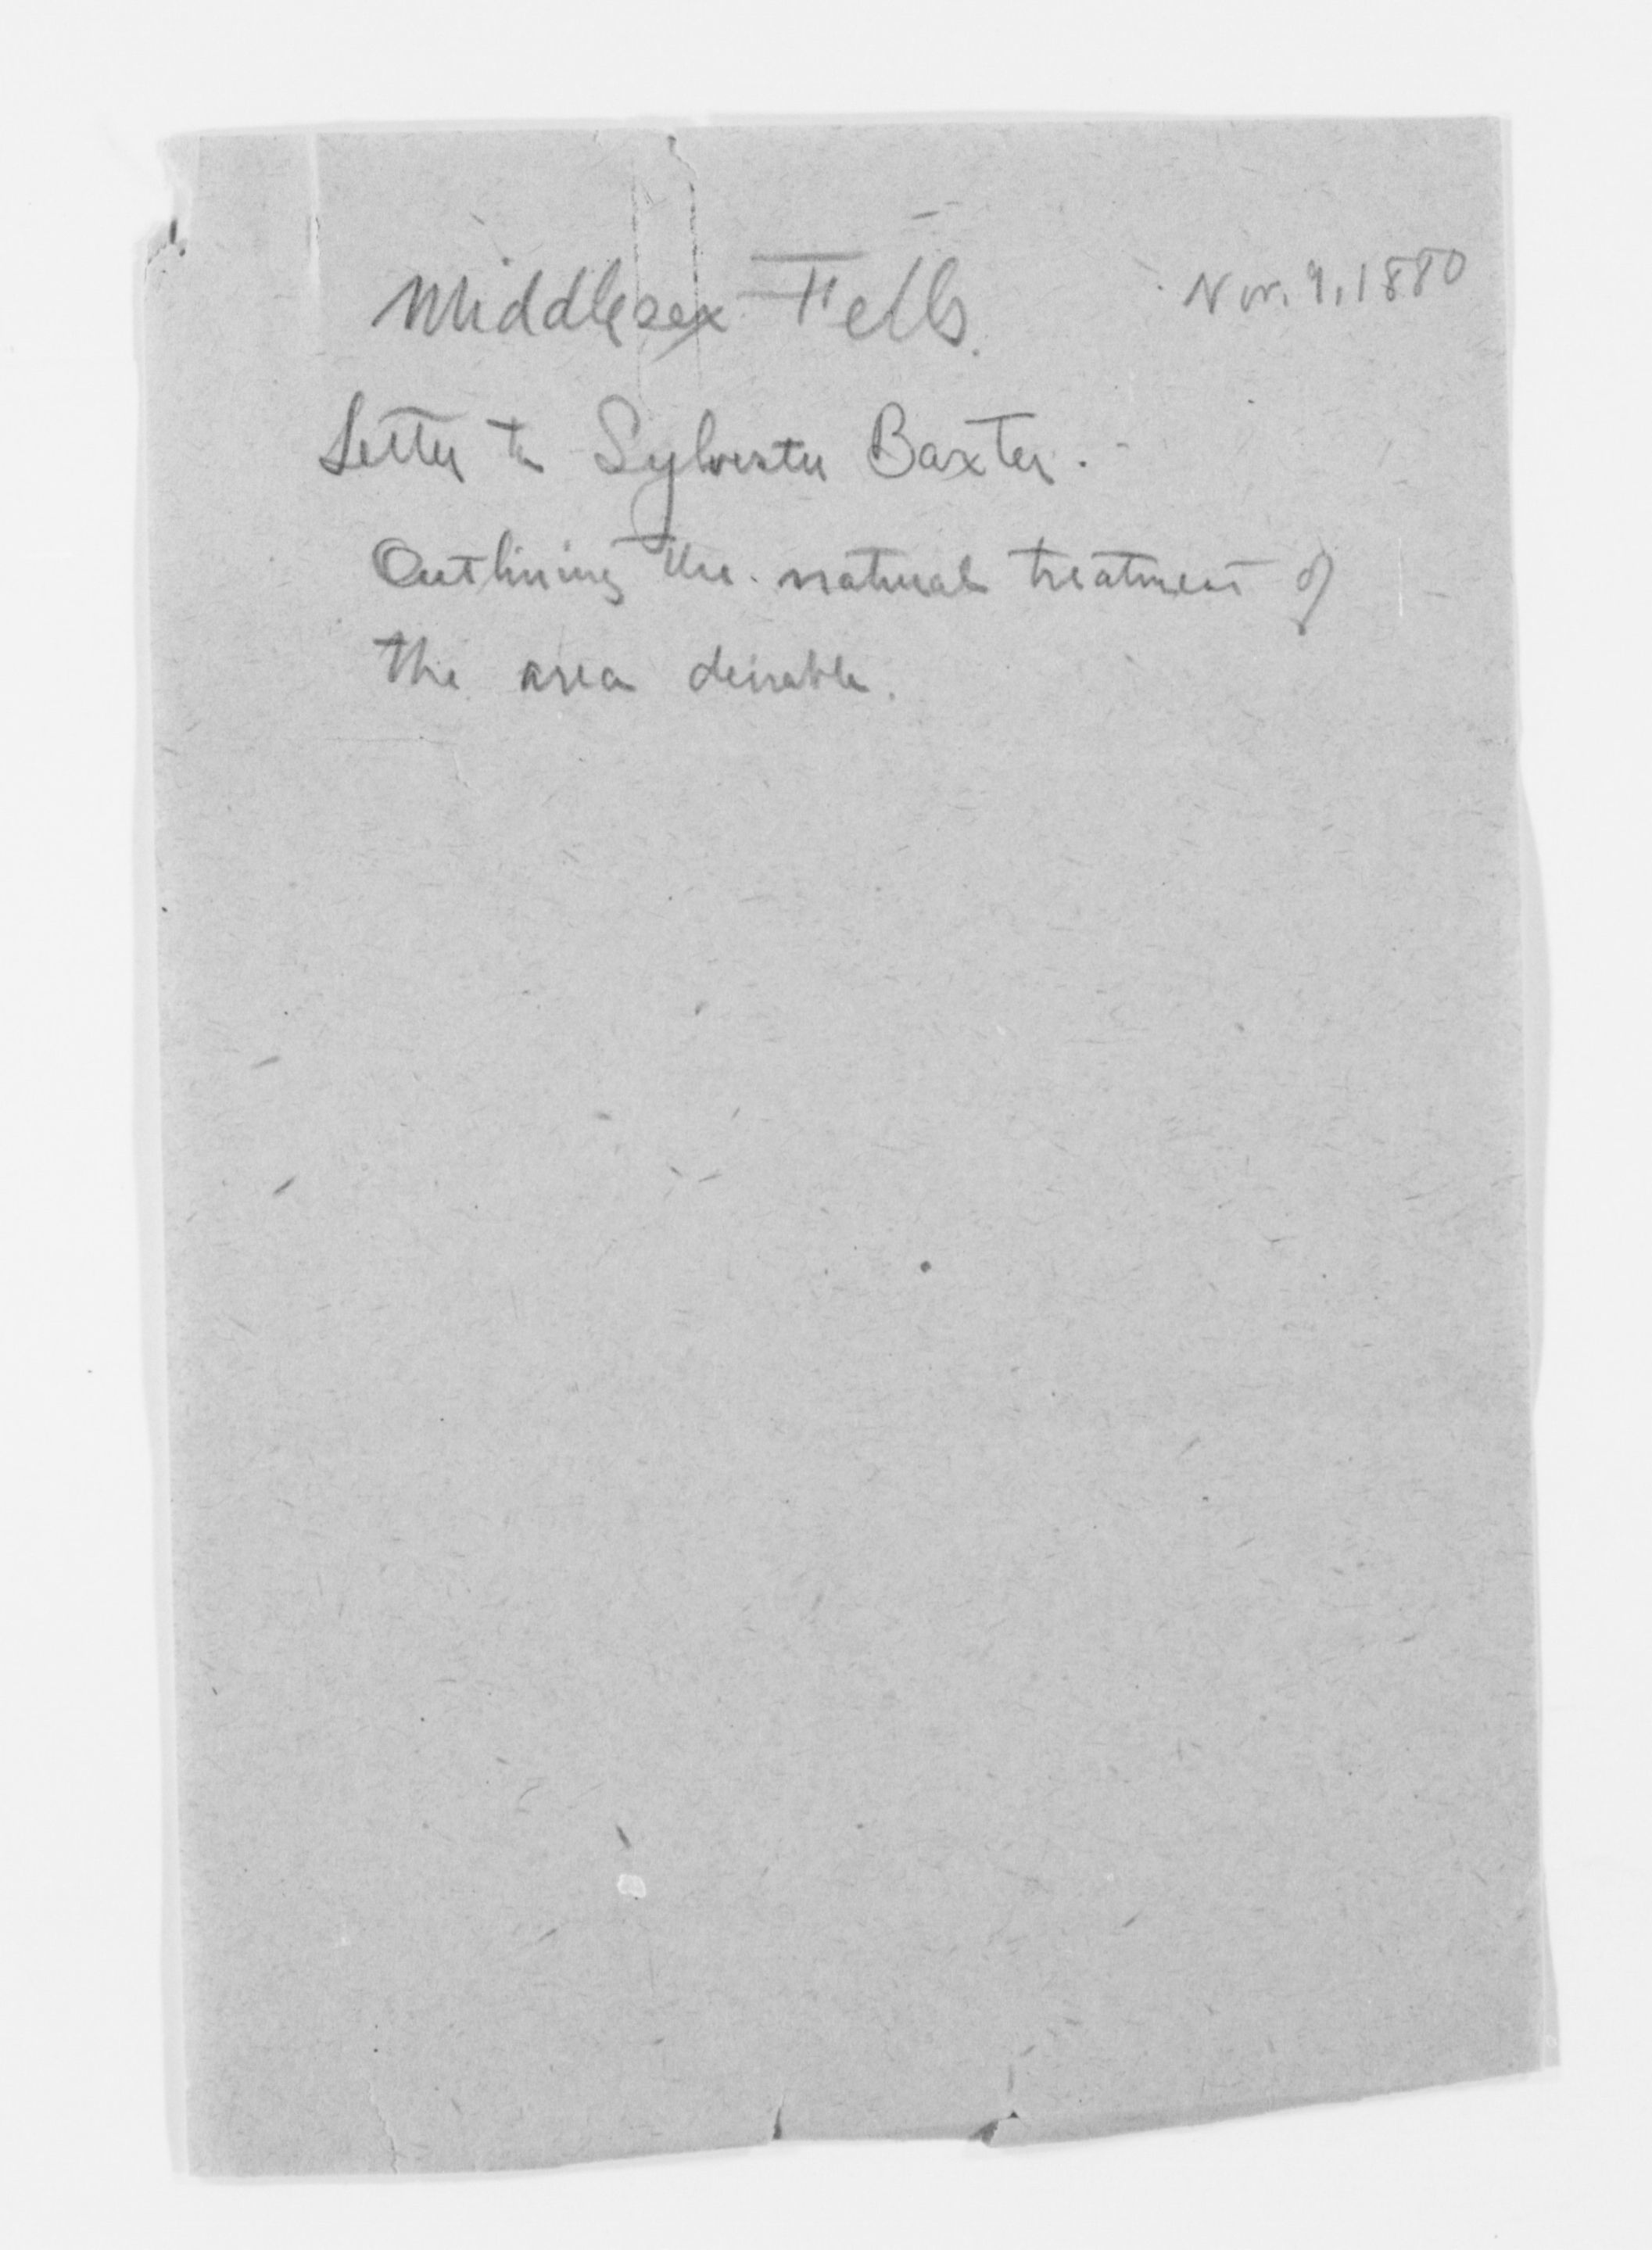 Middlesex Fells. Nov. 9, 1880
Letter to Sylvester Baxter.
Outlining the natural treatment of
the area desirable.